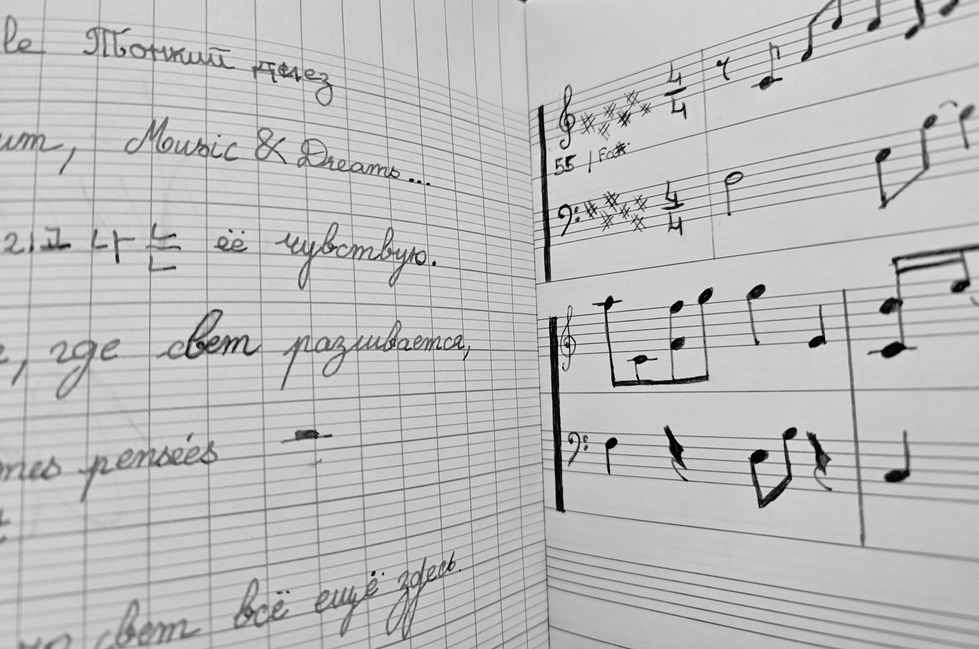 le Тонкий
um, Music & Dreams...
её чувствую.
, где свет разливается,
mes pensées
свет всё ещё здесь.
4/4
55
4/4